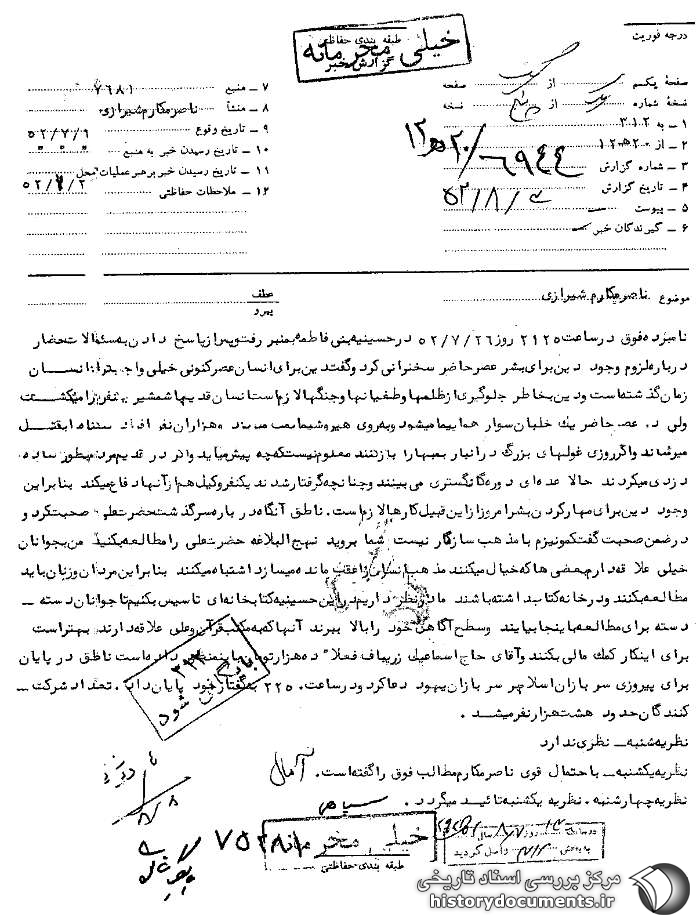 خیلی محرمانه
طبقه بندی حفاظتی
گزارش خبر
درجه فوریت
صفحهٔ یکم از صفحه
نسخهٔ شماره از نسخه
۱ ـ به ۳۱۲
۲ ـ از ۱۲ هـ ۲۰
۳ ـ شماره گزارش ۶۹۴۴ / ۲۰ هـ ۱۲
۴ ـ تاریخ گزارش ۵۲/۸/
۵ ـ پیوست
۶ ـ گیرندگان خبر
۷ ـ منبع ۷۶۸۱
۸ ـ منشأ ناصر مکارم شیرازی
۹ ـ تاریخ وقوع
۱۰ ـ تاریخ رسیدن خبر به منبع
۱۱ ـ تاریخ رسیدن خبر برهبر عملیات محل
۱۲ ـ ملاحظات حفاظتی
موضوع ناصر مکارم شیرازی
عطف
پیرو
نامبرده فوق در ساعت ۲۱۲۵ روز ۵۲/۷/۲۶ در حسینیه بنی فاطمه بمنبر رفت و پس از پاسخ دادن به سئوالات حضار
درباره لزوم وجود دین برای بشر عصر حاضر سخنرانی کرد و گفت دین برای انسان عصر کنونی خیلی واجبتر از انسان
زمان گذشته است و دین بخاطر جلوگیری از ظلمها و طغیانها و جنگها لازم است انسان قدیم با شمشیر نفر را میکشت
ولی در عصر حاضر یک خلبان سوار هواپیما میشود و به روی هیروشیما بمب میریزد و هزاران نفر افراد بیگناه را بقتل
میرساند و اگر روزی غولهای بزرگ در انبار بمبها را باز کنند معلوم نیست که چه پیش میاید و اگر در قدیم مردم بطور ساده
دزدی میکردند حالا عده ای دوره گانگستری می بینند و چنانچه گرفتار شدند یکنفر وکیل هم از آنها دفاع میکند بنابراین
وجود دین برای مهار کردن بشر امروز از این قبیل کارها لازم است. ناطق آنگاه درباره سرگذشت حضرت علی صحبت کرد و
در ضمن صحبت گفت کمونیزم با مذهب سازگار نیست شما بروید نهج البلاغه حضرت علی را مطالعه بکنید من بجوانان
خیلی علاقه دارم بعضی ها که خیال میکنند مذهب انسان را عقب مانده میسازد اشتباه میکنند بنابراین مردان و زنان باید
مطالعه بکنند و در خانه کتاب داشته باشند ما در نظر داریم در این حسینیه کتابخانه ای تاسیس بکنیم تا جوانان دسته ـ
دسته برای مطالعه باینجا بیایند و سطح آگاهی خود را بالا ببرند آنها که به مکتب قرآن و علی علاقه دارند بهتر است
برای اینکار کمک مالی بکنند و آقای حاج اسماعیلی زریباف فعلا ده هزار تومان داده است ناطق در پایان
برای پیروزی سربازان اسلام بر سربازان یهود دعا کرد و در ساعت ۲۲۵۰ به گفتار خود پایان داد. تعداد شرکت ـ
کنندگان حدود هشت هزار نفر میشد.
نظریه شنبه ـ نظری ندارد
نظریه یکشنبه ـ با احتمال قوی ناصر مکارم مطالب فوق را گفته است. آمال
نظریه چهارشنبه. نظریه یکشنبه تائید میگردد.
۳۲۲
شود
۸/۸
خیلی محرمانه
طبقه بندی حفاظتی
مرکز بررسی اسناد تاریخی
historydocuments.ir